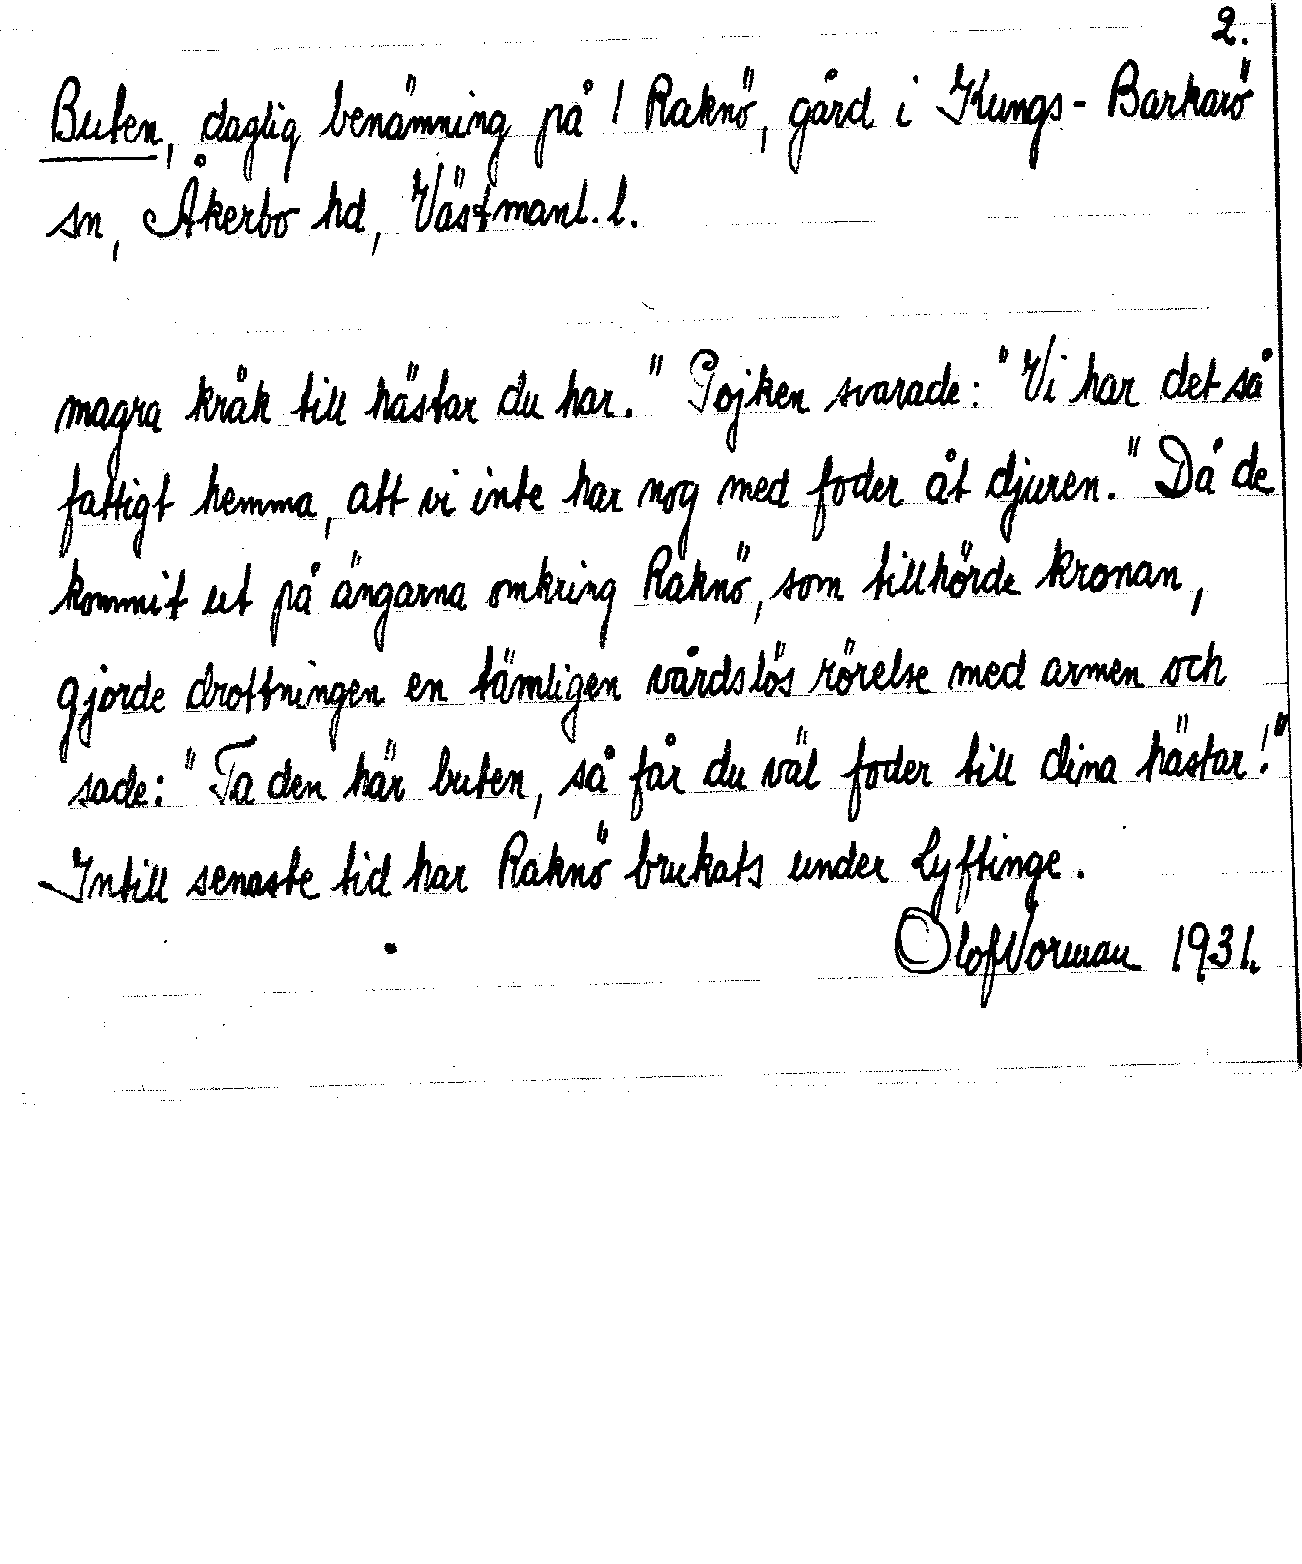 2.
Buten, daglig benämning på 1 Raknö, gård i Kungs-Barkarö
sn, Åkerbo hd, Västmanl. l.
magra kråk till hästar du har." Pojken svarade: "Vi har det så
fattigt hemma, att vi inte har nog med foder åt djuren." Då de
kommit ut på ängarna omkring Raknö, som tillhörde kronan,
gjorde drottningen en tämligen vårdslös rörelse med armen och
sade: "Ta den här buten, så får du väl foder till dina hästar!"
Intill senaste tid har Raknö brukats under Lyftinge.
Olof Norman 1931.